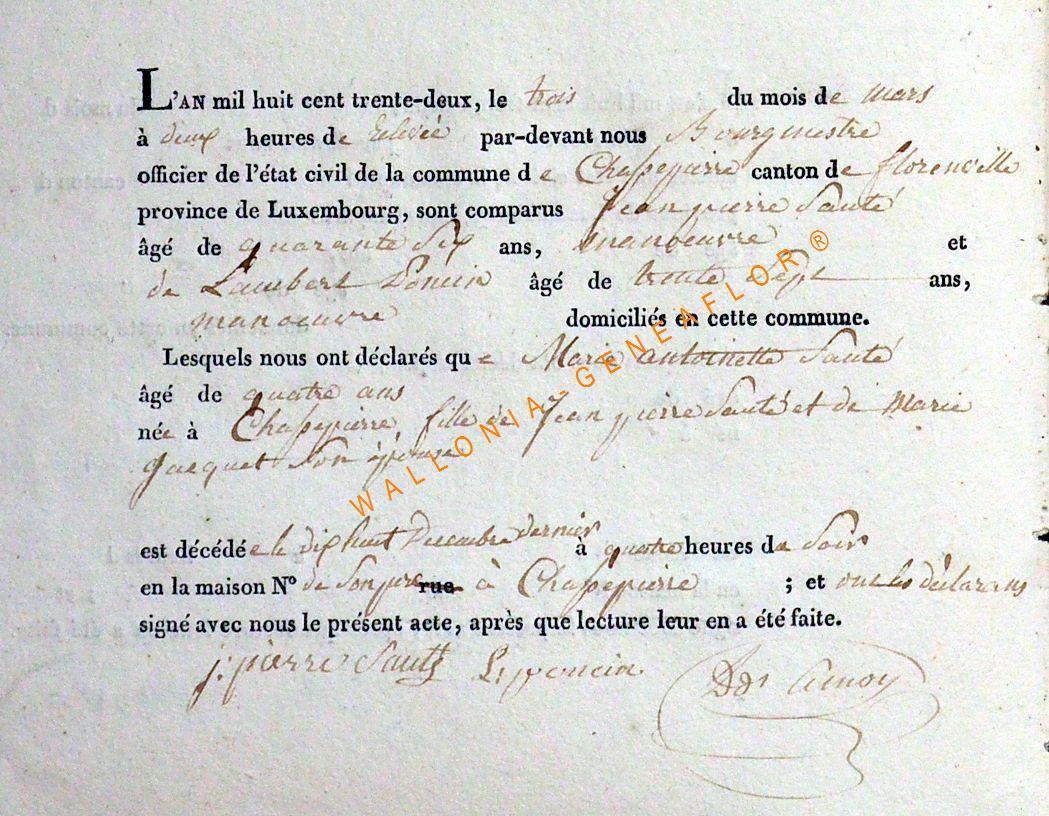 L'AN mil huit cent trente-deux, le trois du mois de mars
à deux heures de relevée par-devant nous Bourgmestre
officier de l'état civil de la commune de Chassepierre canton de florenville
province de Luxembourg, sont comparus Jean pierre Sauté
âgé de quarante six ans, manoeuvre et
de Lambert Poncin âgé de trente sept ans,
manoeuvre domiciliés en cette commune.
Lesquels nous ont déclarés que Marie antoinette Sauté
âgé de quatre ans
née à Chassepierre, fille de Jean pierre Sauté et de Marie
Jacquet Son épouse.
est décédée le dix huit Decembre dernier à quatre heures de Soir
en la maison Nº de Son pere rue à Chassepierre ; et ont les déclarans
signé avec nous le présent acte, après que lecture leur en a été faite.
j. pierre Sauté L. poncin
WALLONIA-GENEAFLOR®